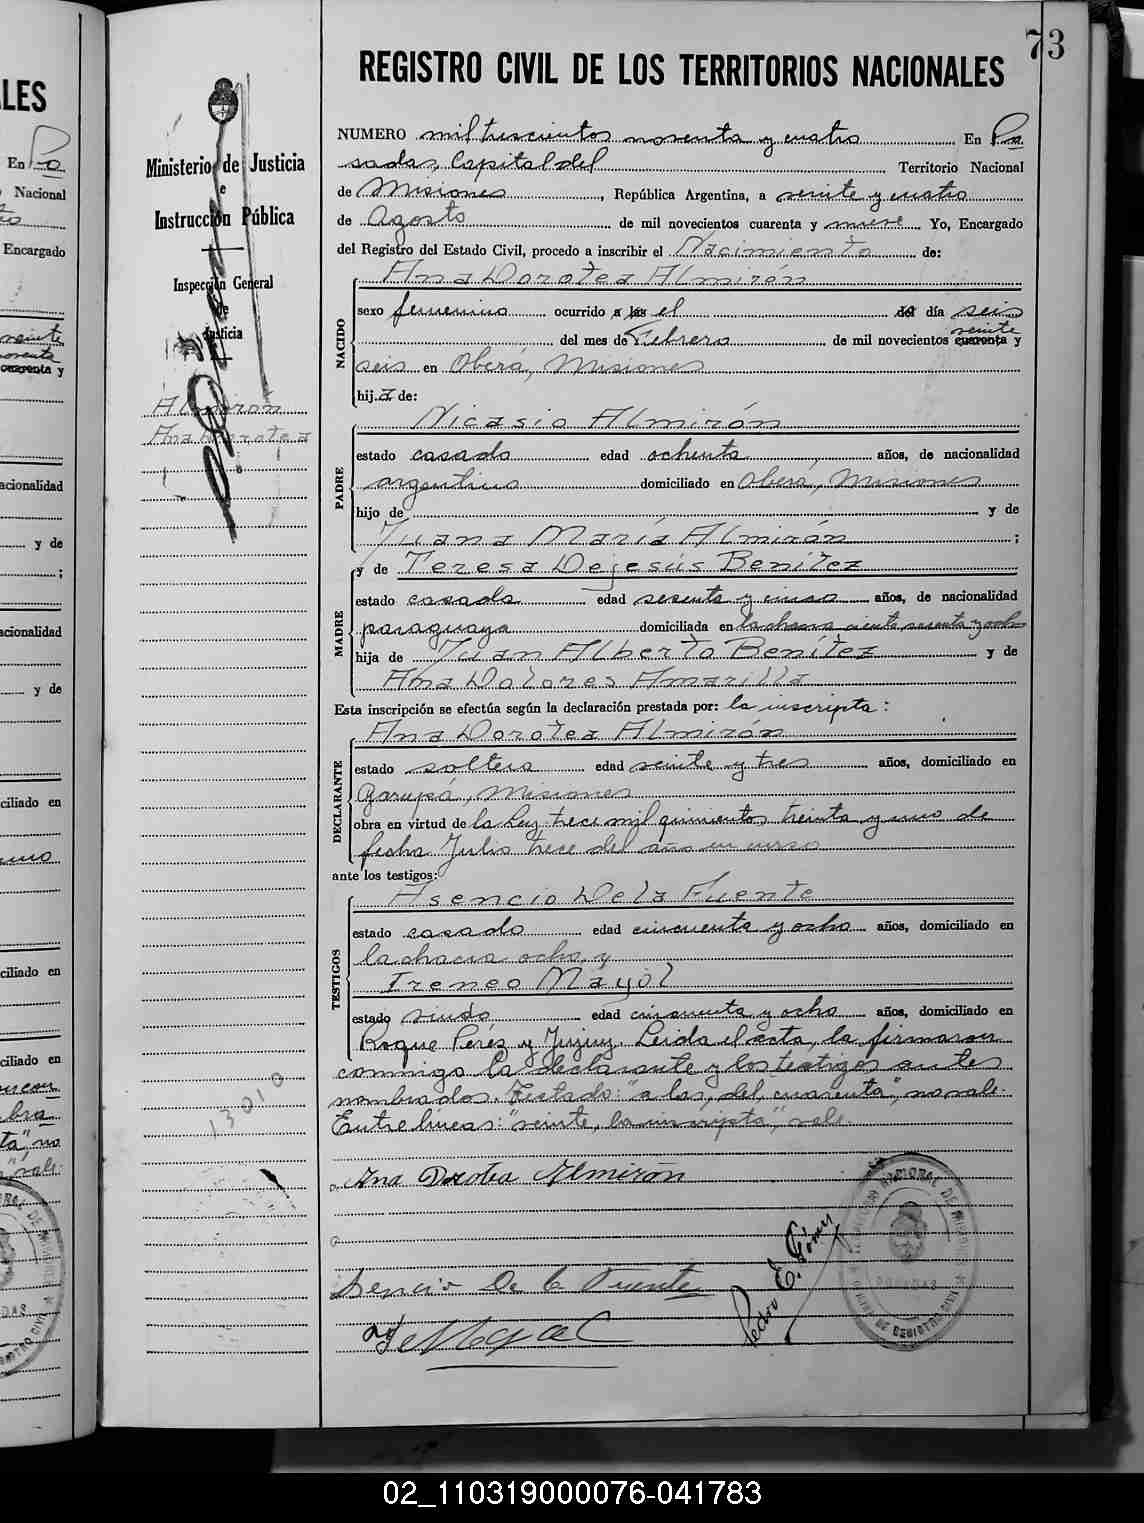 73
REGISTRO CIVIL DE LOS TERRITORIOS NACIONALES
NUMERO mil trescientos noventa y cuatro En Po
sadas, Capital del Territorio Nacional
de Misiones, República Argentina, a veinte y cuatro
de Agosto de mil novecientos cuarenta y nueve Yo, Encargado
del Registro del Estado Civil, procedo a inscribir el Nacimiento de:
Ana Dorotea Almirón
NACIDO
sexo femenino ocurrido a las el del día seis
veinte
del mes de Febrero de mil novecientos cuarenta y
seis en Oberá, Misiones
hija de:
Nicasio Almirón
PADRE
estado casado edad ochenta años, de nacionalidad
argentino domiciliado en Oberá, Misiones
hijo de y de
Juana María Almirón;
y de Teresa Dejesús Benítez
MADRE
estado casada edad sesenta y cinco años, de nacionalidad
paraguaya domiciliada en la chacra ciento sesenta y ocho
hija de Juan Alberto Benítez y de
Ana Dolores Amarilla
Esta inscripción se efectúa según la declaración prestada por: la inscripta:
Ana Dorotea Almirón
DECLARANTE
estado soltera edad veinte y tres años, domiciliado en
Garupá, Misiones
obra en virtud de la Ley trece mil quinientos treinta y uno de
fecha Julio trece del año en curso
ante los testigos:
Asencio De la Fuente
TESTIGOS
estado casado edad cincuenta y ocho años, domiciliado en
la chacra ocho, y
Ireneo Mayol
estado viudo edad cincuenta y ocho años, domiciliado en
Roque Pérez y Jujuy. Leida el acta, la firmaron
conmigo la declarante y los testigos antes
nombrados. Testado: "a las, del, cuarenta", no vale.
Entre líneas: "veinte, la inscripta", vale.
Ana Dorotea Almirón
Asencio De la Fuente
Pedro E. Gómez
POSADAS
Ministerio de Justicia
e
Instrucción Pública
Inspección General
de
Justicia
Almirón
Ana Dorotea
13010
LES
En Po
Nacional
Encargado
veinte
cuarenta y
acionalidad
y de
;
acionalidad
y de
ciliado en
ciliado en
ciliado en
02_110319000076-041783